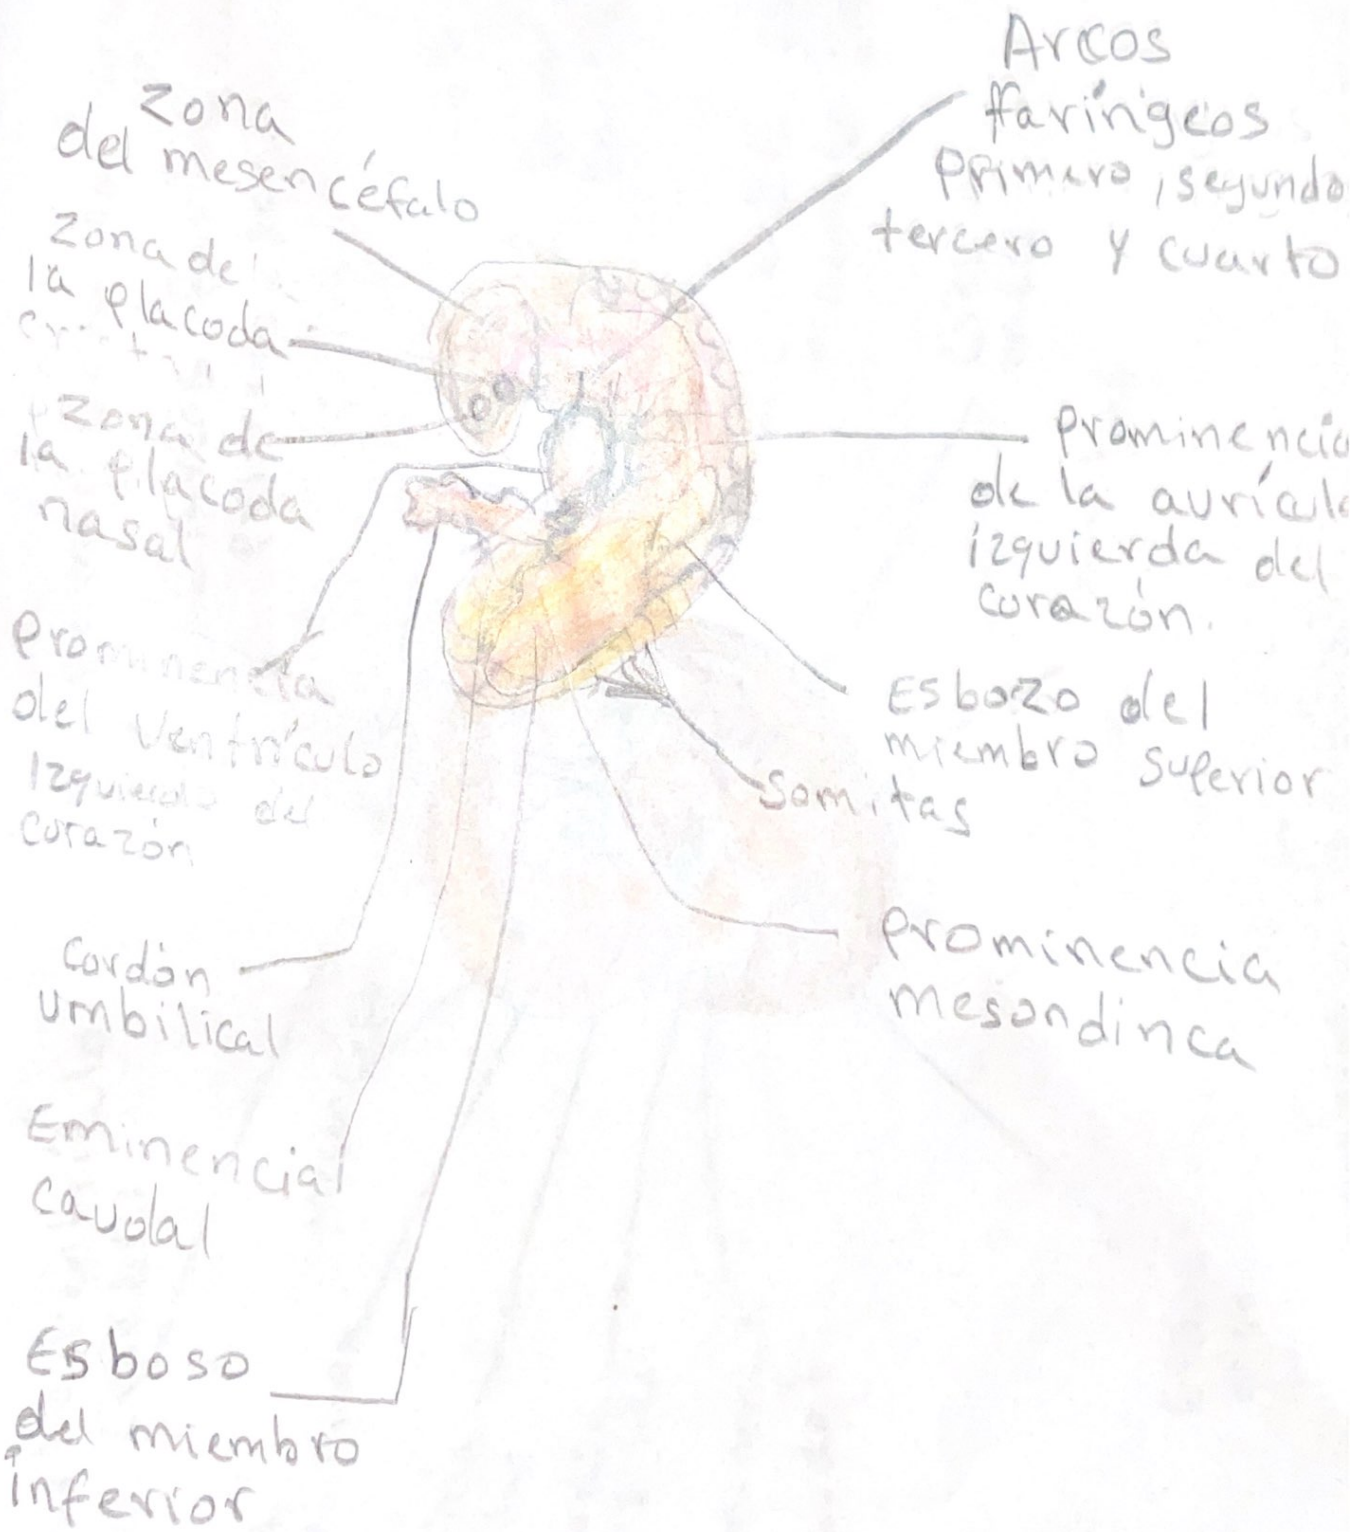 Zona
del mesencéfalo
Zona de
la placoda
Zona de
la placoda
nasal
Prominencia
del Ventrículo
Izquierdo del
corazón
Cordón
umbilical
Eminencial
caudal
Esboso
del miembro
inferior
Arcos
faríngeos
Primero, segundo
tercero y cuarto
Prominencia
de la aurícula
izquierda del
corazón.
Esbozo del
miembro superior
Somitas
Prominencia
mesondinca